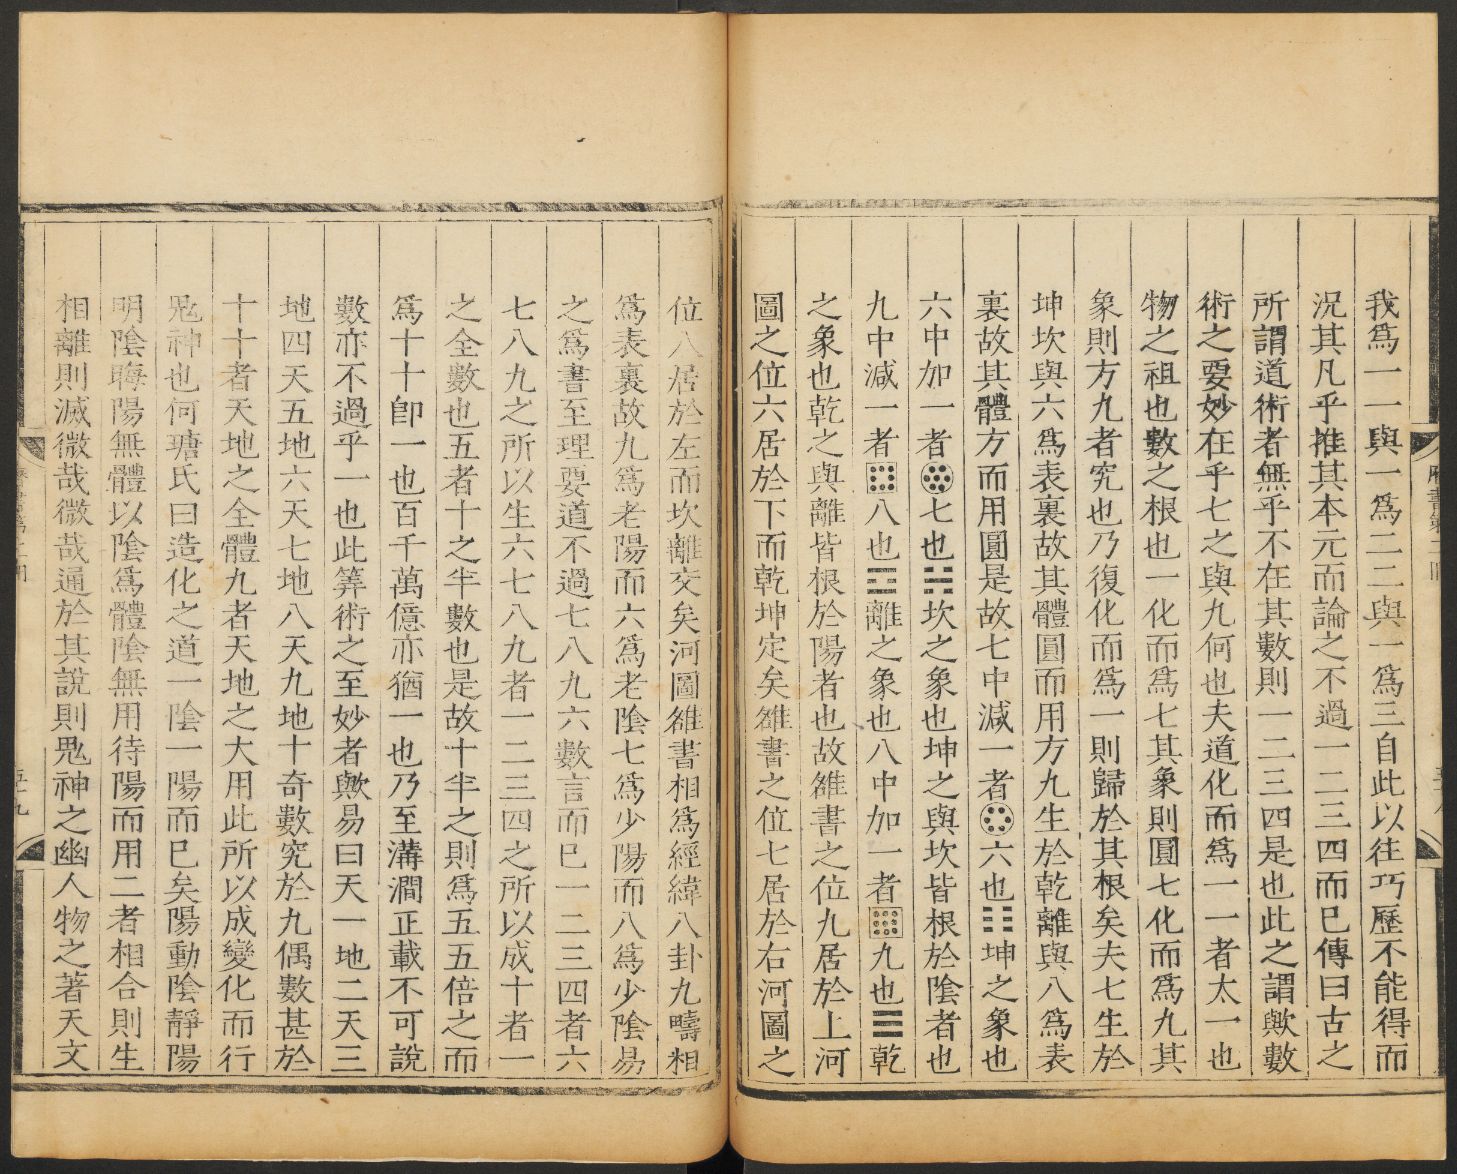 我爲一一與一爲二二與一爲三自此以往巧歷不能得而
況其凡乎推其本元而論之不過一二三四而已傳曰古之
所謂道術者無乎不在其數則一二三四是也此之謂歟數
術之要妙在乎七之與九何也夫道化而爲一一者太一也
物之祖也數之根也一化而爲七其象則圓七化而爲九其
象則方九者究也乃復化而爲一則歸於其根矣夫七生於
坤坎與六爲表裏故其體圓而用方九生於乾離與八爲表
裏故其體方而用圓是故七中減一者六也☷坤之象也
六中加一者七也☵坎之象也坤之與坎皆根於陰者也
九中減一者八也☲離之象也八中加一者九也☰乾
之象也乾之與離皆根於陽者也故雒書之位九居於上河
圖之位六居於下而乾坤定矣雒書之位七居於右河圖之
位八居於左而坎離交矣河圖雒書相爲經緯八卦九疇相
爲表裏故九爲老陽而六爲老陰七爲少陽而八爲少陰易
之爲書至理要道不過七八九六數言而已一二三四者六
七八九之所以生六七八九者一二三四之所以成十者一
之全數也五者十之半數也是故十半之則爲五五倍之而
爲十十卽一也百千萬億亦猶一也乃至溝澗正載不可說
數亦不過乎一也此筭術之至妙者歟易曰天一地二天三
地四天五地六天七地八天九地十奇數究於九偶數甚於
十十者天地之全體九者天地之大用此所以成變化而行
鬼神也何瑭氏曰造化之道一陰一陽而已矣陽動陰靜陽
明陰晦陽無體以陰爲體陰無用待陽而用二者相合則生
相離則滅微哉微哉通於其說則鬼神之幽人物之著天文